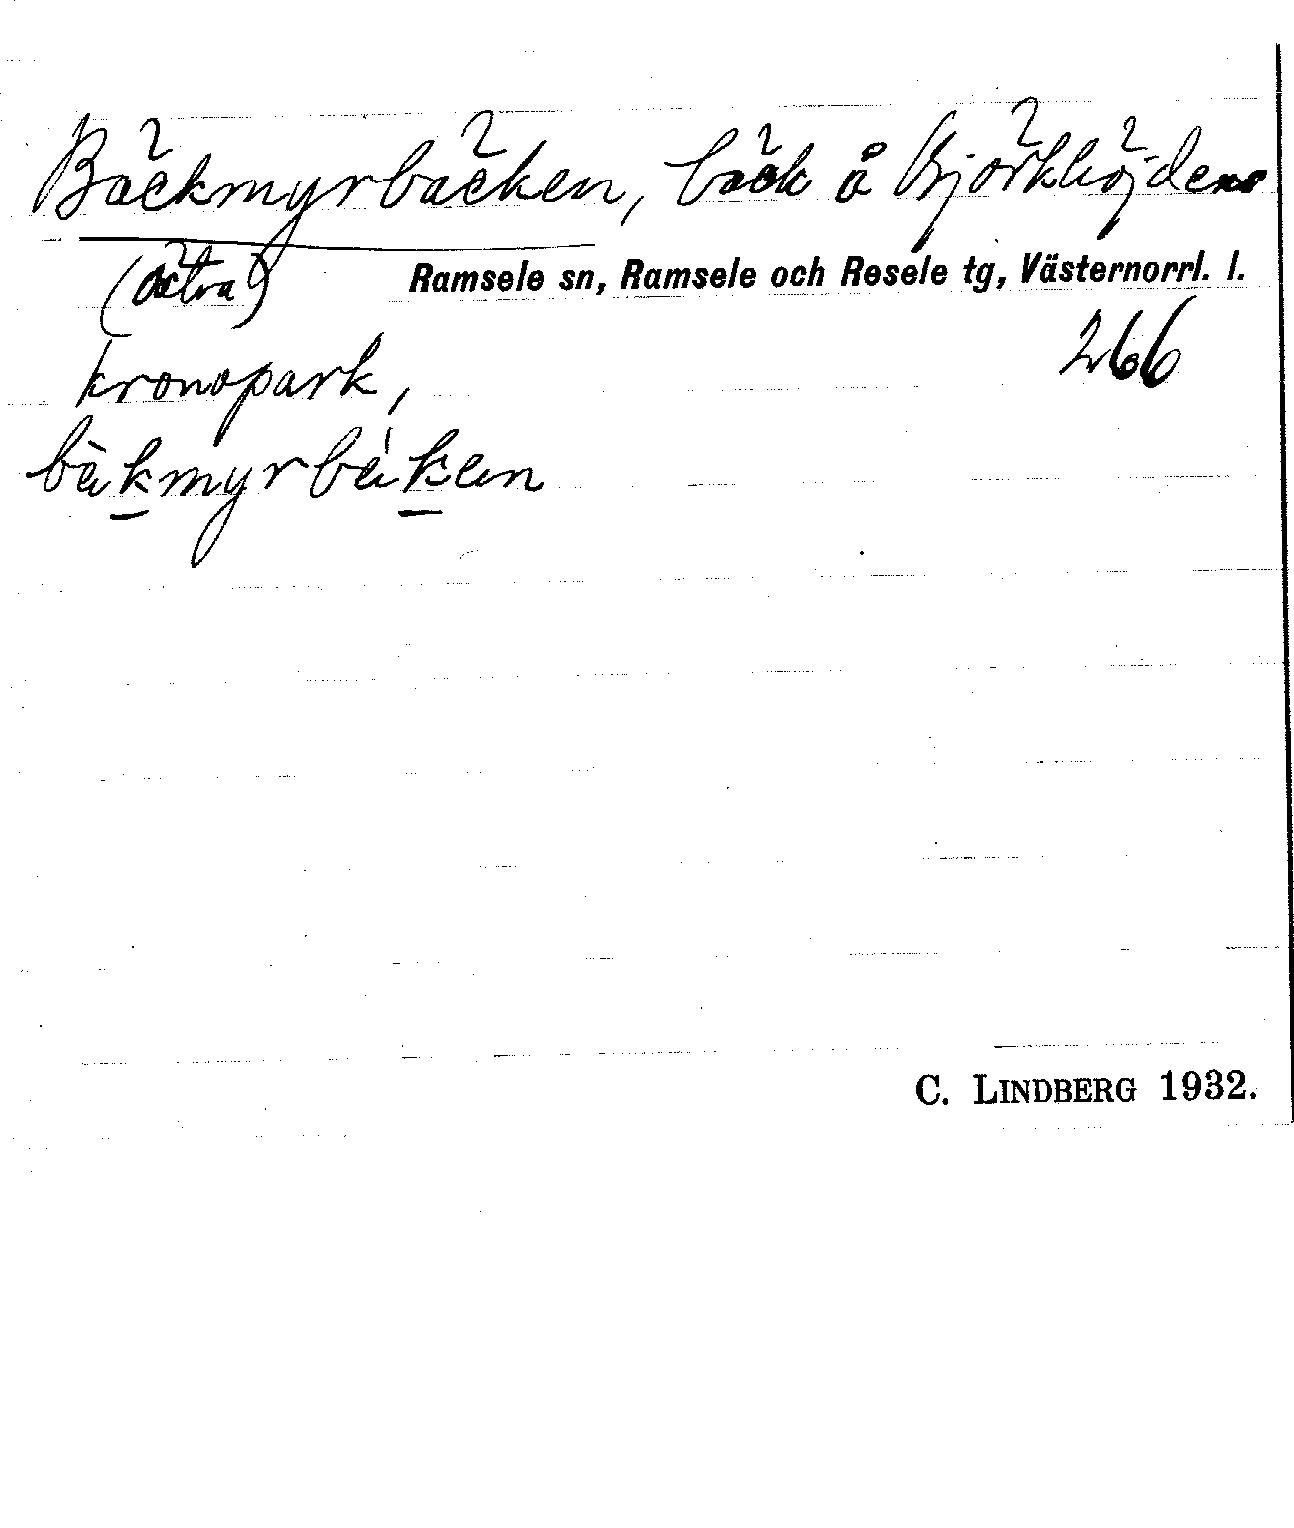 Bäckmyrbäcken, bäck å Björkhöjdens
(östra) Ramsele sn, Ramsele och Resele tg, Västernorrl. l.
266
kronopark,
bὰkmyrbáken
C. LINDBERG 1932.